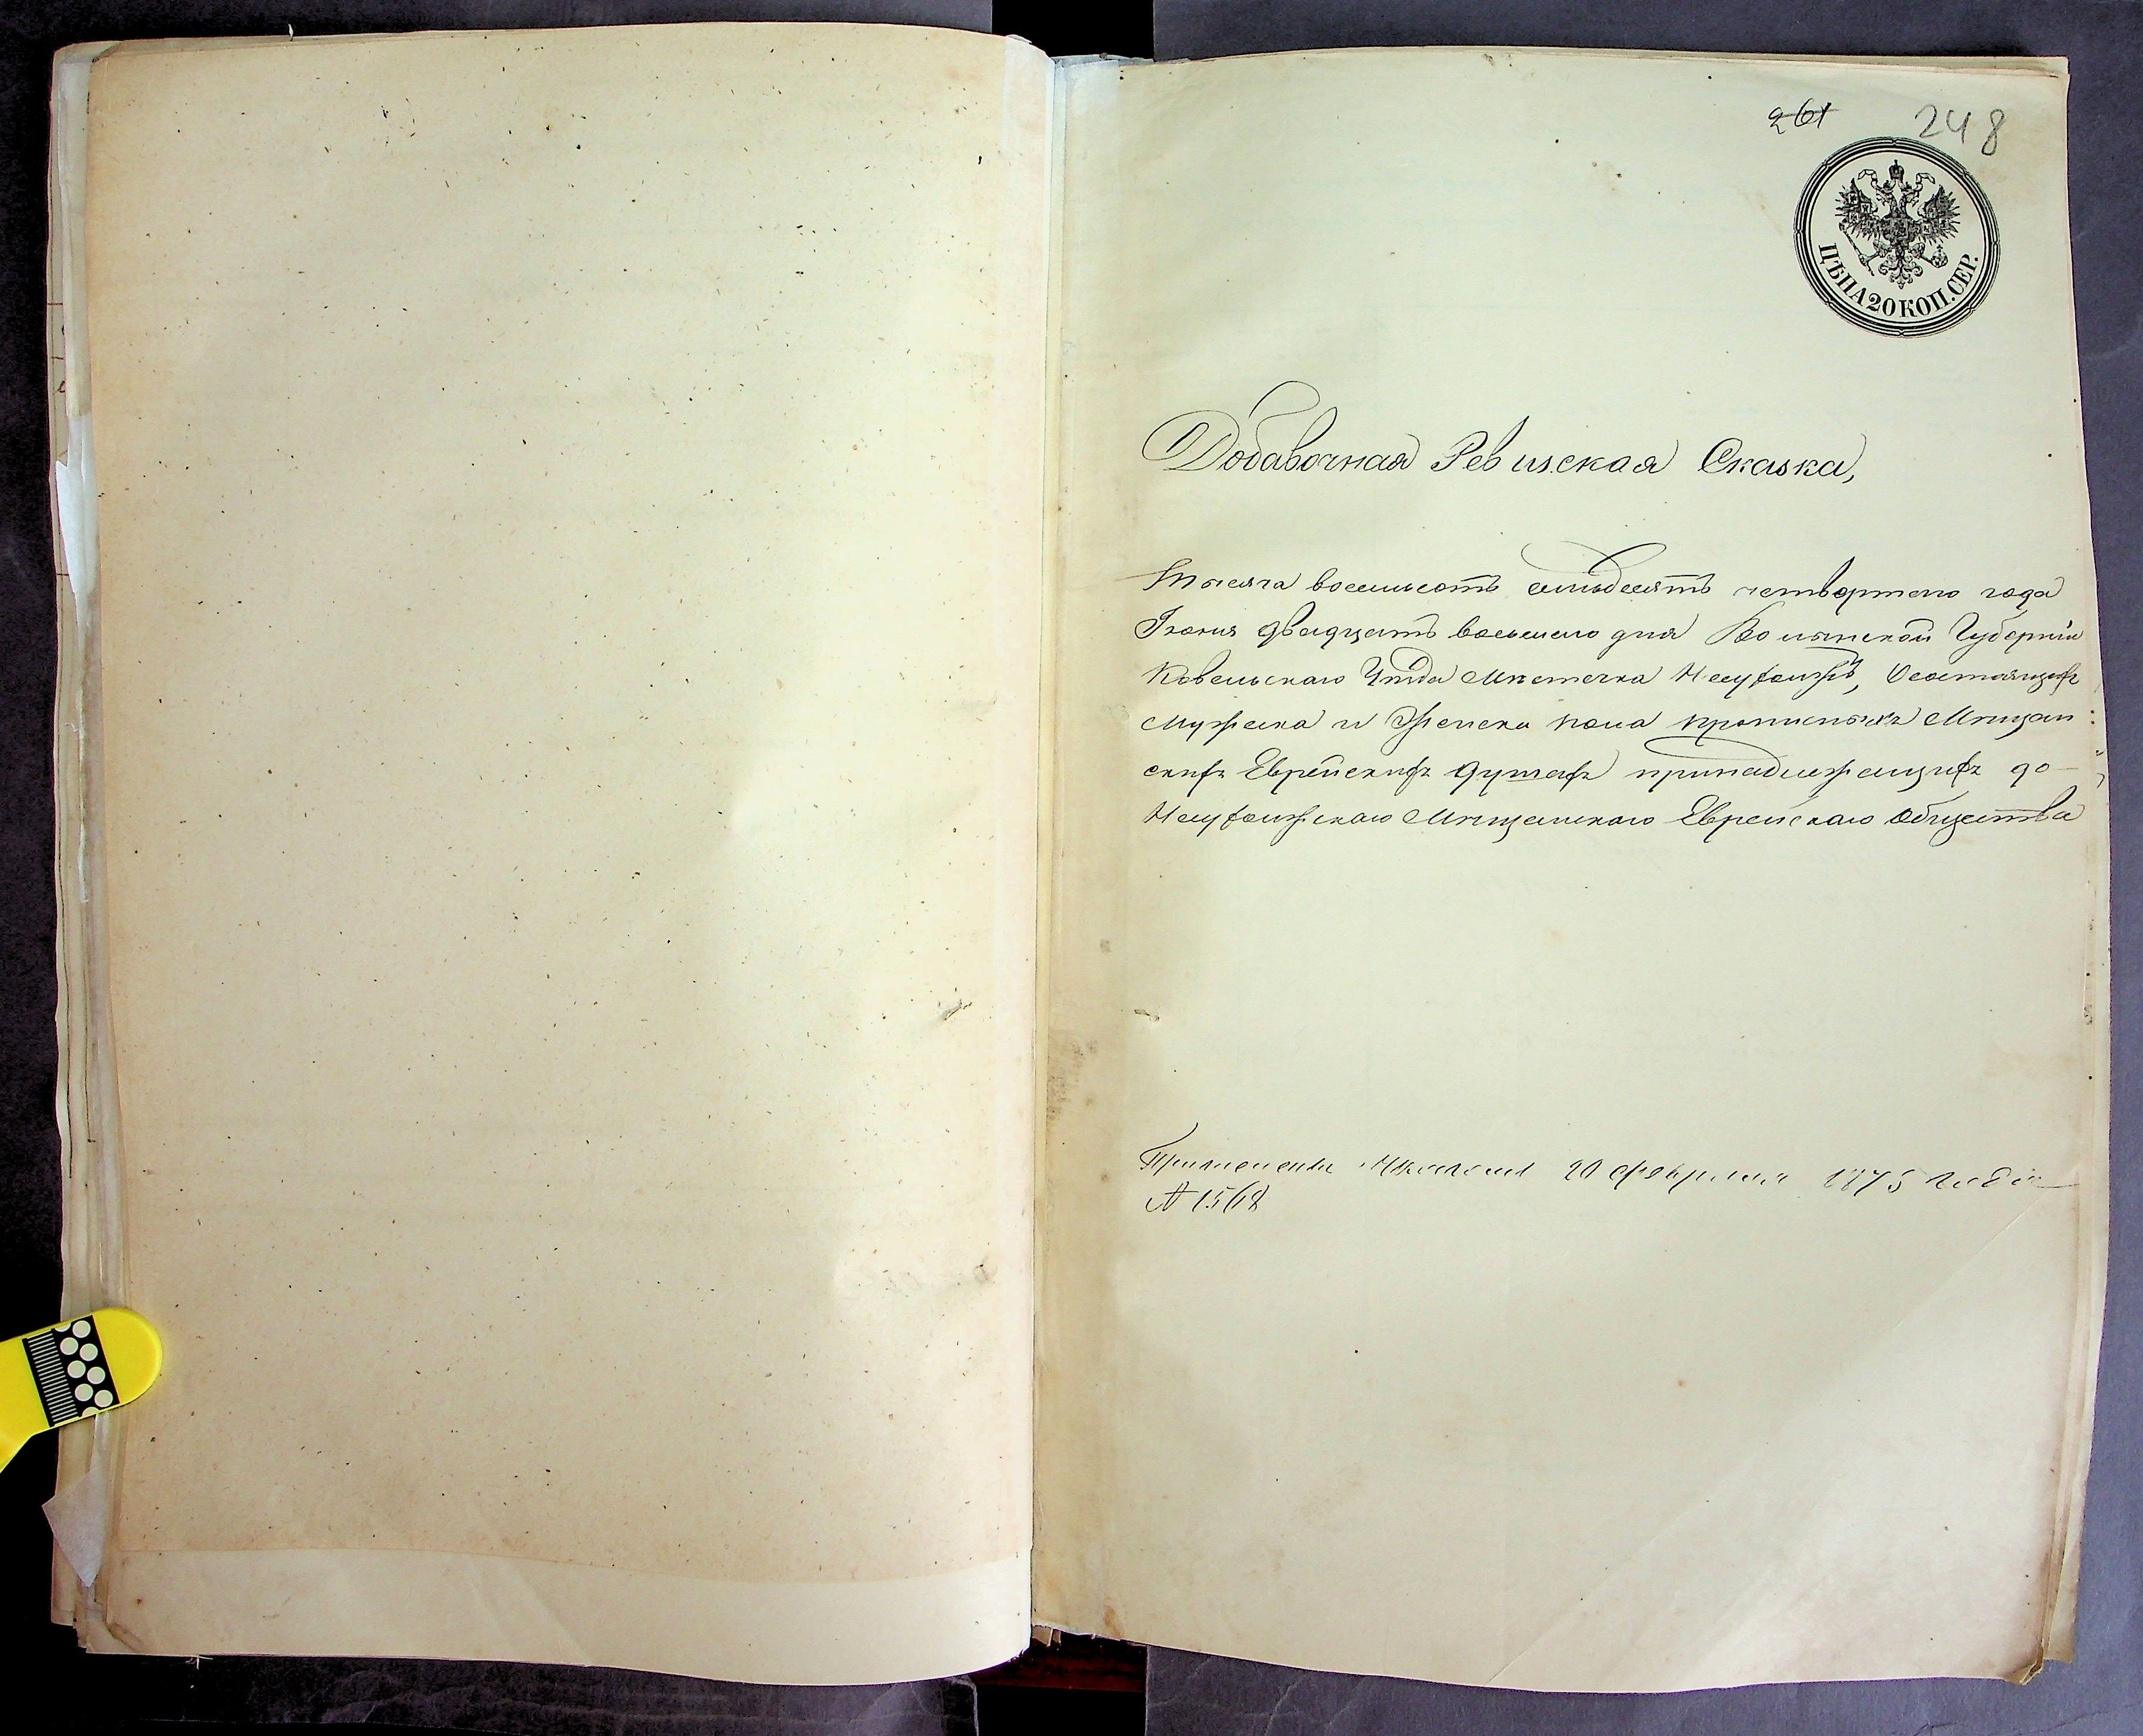 261 248
ЦѢНА 20 КОП. СЕР.
Добавочная Ревизская Сказка,
Тысяча восемьсотъ семьдесятъ четвертого года
Іюня двадцать восьмого дня Волынской Губерніи
Ковельскаго Уѣзда Мѣстечка Несухоижъ, Состоящихъ
Мужеска и Женска пола прописныхъ Мѣщан:
скихъ Еврейскихъ душахъ принадлежащихъ до
Несухоижскаго Мѣщанскаго Еврейскаго Общества
20 февраля 1875 года